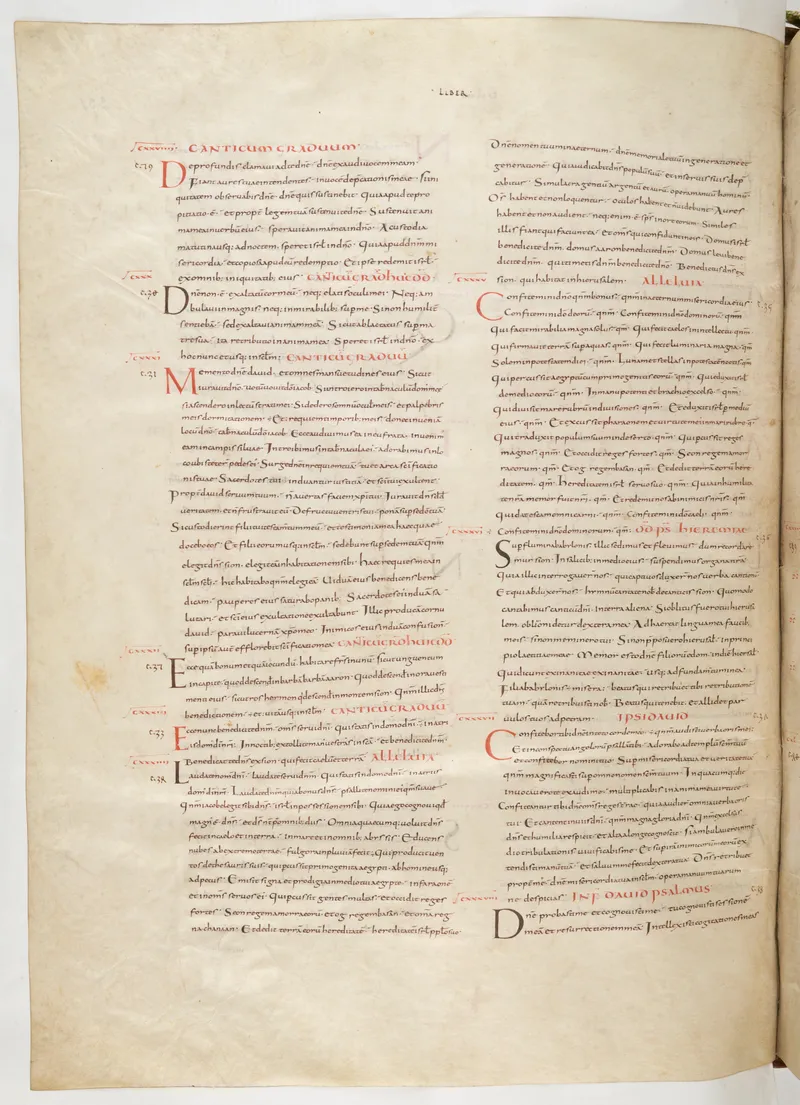 · LIBER ·
CXXVIIII CANTICUM GRADUUM
De profundis clamaui ad te dne · dne exaudi uocem meam ·
Fiant aures tuae intendentes · in uoce deprecationis meae · Si ini
quitates obseruabis dne · dne quis sustinebit · Quia apud te pro
pitiatio ē · et propt legem tuā sustinui te dne · Sustinuit ani
ma mea in uerbū eius · sperauit anima mea in dno · A custodia
matutina usq; ad noctem · speret isrl in dno · Quia apud dnm mi
sericordia · et copiosa apud eū redemptio · Et ipse redimet isrl ·
CXXX ex omnib; iniquitatib; eius · CANTICŪ GRADUŪ DD
Dne non ē exaltatū cor meū · neq; elati s̄ oculi mei · Neq; am
bulaui in magnis · neq; in mirabilib; sup me · Si non humilit
sentiebā · sed exaltaui animam meā · Sicut ablactatus sup ma
tre sua · ita retributio in anima mea · Speret isrl in dno · ex
CXXXI hoc nunc et usq; in sclm · CANTICŪ GRADUU
Memento dne dauid · et omnis mansuetudinis eius · Sicut
iurauit dno · uotū uouit dō iacob · Si introiero in tabnaculū dom' meae
si ascendero in lectū strati mei · Si dedero somnū oculis meis · et palpebris
meis dormitationem · Et requiem temporib; meis · donec inueniā
locū dno · tabnaculū dō iacob · Ecce audiuim' eā in eufrata · inuenim'
eam in campis siluae · Introibim' in tabnacula ei' · adorabim' in lo
co ubi steter pedes ei' · Surge dne in requiem tuā · tu et arca sc̄ificatio
nis tuae · Sacerdotes tui induantur iustitiā · et sc̄i tui exultent ·
Propt dauid seruum tuum · n auertas faciem xp̄i tui · Iurauit dns dd
ueritatem · et n frustrauit eū · De fructu uentris tui · ponā sup sedē tuā
Si custodierint filii tui testam̄tum meū · et testimonia mea haec quae
docebo eos · Et filii eorum usq; in sclm · sedebunt sup sedem tuā qnm
elegit dns sion · elegit eā in habitationem sibi · haec requies mea in
sclm scli · hic habitabo qnm elegi eā · Uiduā eius benedicens bene
dicam · pauperes eius saturabo panib; · Sacerdotes ei' induā sa
lutari · et sc̄i eius exultatione exultabunt · Illic producā cornu
dauid · paraui lucernā xp̄o meo · Inimicos ei' induā confusion̄
sup ipsū aut̄ efflorebit sc̄ificatio mea · CANTICŪ GRADUŪ DD
Ecce quā bonum et quā iucundū · habitare fr̄s in unū · Sicut unguentum
in capite · quod descendit in barbā barbā aaron · Quod descendit in ora uesti
menti eius · sicut ros hermon q̄ descendit in montem sion · Qnm illic dns
benedictionem · et uitā usq; in sclm · CANTICŪ GRADUU
Ecce nunc benedicite dnm · oms serui dni · Qui statis in domo dni · in atri
is dom' di nri · In noctib; extollite manus uestras in sc̄a · et benedicite dnm
Benedicat te dns ex sion · qui fecit caelū et terrā · ALLELUIA
Laudate nomen dni · laudate serui dnm · Qui statis in domo dni · in atriis
dom' di nri · Laudate dnm quia bonus dns · psallite nomini ei' qnm suaue
Qnm iacob elegit sibi dns · isrl in possessionem sibi · Quia ego cognoui qd
magn' ē dns · et ds̄ nr̄ p̄ omnib; diis · Omnia quaecumq; uoluit dns
fecit in caelo et in terra · in mari et in omnib; abyssis · Educens
nubes ab extremo terrae · fulgora in pluuiā fecit · Qui producit uen
tos de thesauris suis · qui percussit primogenita aegypti · ab homine usq;
ad pecus · Emisit signa et prodigia in medio tui aegypte · in faraone
et in oms seruos ei' · Qui percussit gentes multas · et occidit reges
fortes · Seon regem amorraeorū · et og regem basan · et omnia reg
na chanaan · Et dedit terrā eorū hereditatē · hereditatē isrl pplo suo
Dne nomen tuum in aeternum · dne memoriale tuū in generatione et
generationē · Quia iudicabit dns populum suū · et in seruis suis dep
cabitur · Simulacra gentiū argentū et aurū · opera manuum hominū
Os habent et non loquentur · oculos habent et n uidebunt · Aures
habent et non audient · neq; enim ē sps̄ in ore eorum · Similes
illis fiant qui faciunt ea · et oms qui confidunt in eis · Domus isrl
benedicite dnm · domus aaron benedicite dnm · Domus leui bene
dicite dnm · qui timetis dnm benedicite dnm · Benedictus dns ex
CXXXV sion · qui habitat in hierusalem · ALLELUIA
Confitemini dno qnm bonus · qnm in aeternum misericordia eius ·
Confitemini dō deorū · qnm · Confitemini dno dominorū · qnm ·
Qui facit mirabilia magna solus · qnm · Qui fecit caelos in intellectu · qnm ·
Qui firmauit terrā sup aquas · qnm · Qui fecit luminaria magna · qnm
Solem in potestatem diei · qnm · Lunam et stellas in potestatē noctis qnm
Qui percussit aegyptū cum primogenitis eorū · qnm · Qui eduxit isrl
de medio eorū · qnm · In manu potenti et brachio excelso · qnm
Qui diuisit mare rubrū in diuisiones · qnm · Et eduxit isrl p mediū
eius · qnm · Et excussit pharaonem et uirtutē ei' in mari rubro · qnm
Qui traduxit populum suum in deserto · qnm · Qui percussit reges
magnos · qnm · Et occidit reges fortes · qnm · Seon regem amor
raeorum · qnm · Et og regem basan · qnm · Et dedit terrā eorū here
ditatem · qnm · Hereditatem isrl seruo suo · qnm · Quia in humilita
te nrā memor fuit nri · qnm · Et redemit nos ab inimicis nris · qnm
Qui dat escam omni carni · qnm · Confitemini dō caeli · qnm ·
CXXXVI Confitemini dno dominorum · qnm · DD PS HIEREMIAE
Super flumina babylonis · illic sedimus et fleuimus · dum recordare
mur sion · In salicib; in medio eius · suspendimus organa nrā
Quia illic interrogauer nos · qui captiuos duxer nos uerba cantionū
Et qui abduxer nos · hymnum cantate nobis de canticis sion · Quomodo
cantabimus canticū dni · in terra aliena · Si oblitus fuero tui hierusa
lem · obliuioni detur dextera mea · Adhaereat lingua mea faucib;
meis · si non meminero tui · Si non pposuero hierusalē · in princi
pio laetitiae meae · Memor esto dne filiorū edom · in die hierusalē
Qui dicunt exinanite exinanite · usq; ad fundamtum in ea ·
Filia babylonis misera · beatus qui retribuet tibi retributionē
tuam · quā retribuisti nobis · Beatus qui tenebit · et allidet par
CXXXVII uulos suos ad petram · IPSI DAUID
Confitebor tibi dne in toto corde meo · qnm audisti uerba oris mei
Et in conspectu angelorū psallā tibi · Adorabo ad templū sc̄m tuū
et confitebor nomini tuo · Sup misericordia tua et ueritate tua
qnm magnificasti sup omne nomen sc̄m tuum · In quacumq; die
inuocauero te exaudi me · multiplicabis in anima mea uirtutē
Confiteantur tibi dne oms reges terrae · quia audier omnia uerba oris
tui · Et cantent in uiis dni · qnm magna gloria dni · Qnm excelsus
dns et humilia respicit · et alta a longe cognoscit · Si ambulauero in me
dio tribulationis uiuificabis me · Et sup irā inimicorum meorū ex
tendisti manū tuā · et saluum me fecit dextera tua · Dns retribuet
propt me · dne misericordia tua in sclm · opera manuum tuarum
CXXXVIII ne despicias · IN F̄ DAUID PSALMUS
Dne probasti me et cognouisti me · tu cognouisti sessionē
meā et resurrectionem meā · Intellexisti cogitationes meas